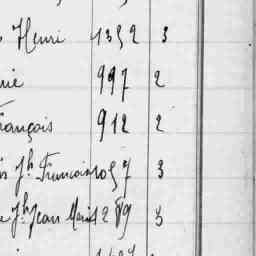 Henri 1352 3
997 2
François 912 2
Jh. Francois 1057 3
Jh. Jean Marie 1289 3